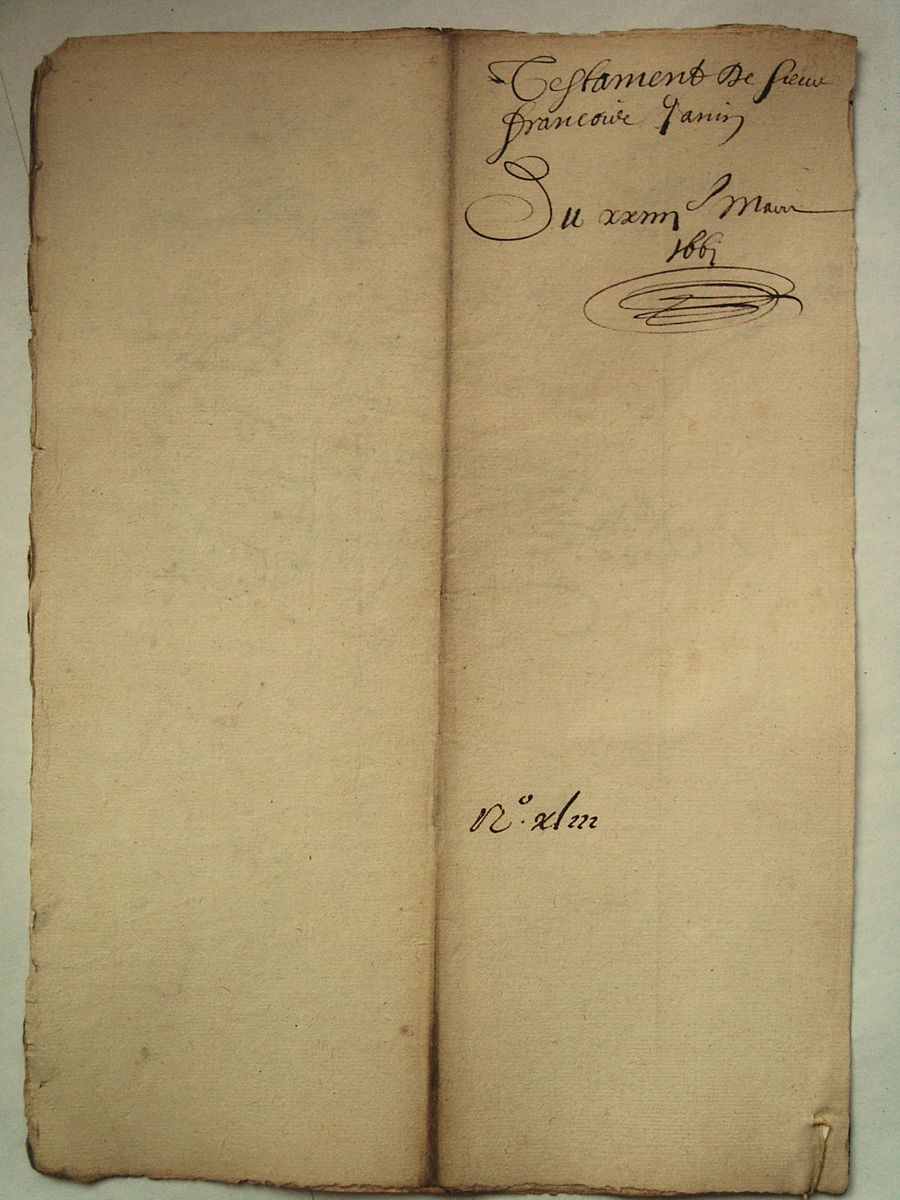 Testament de sieur
francoise Janin
Du xxiiii Mars
1661
N.º xliii